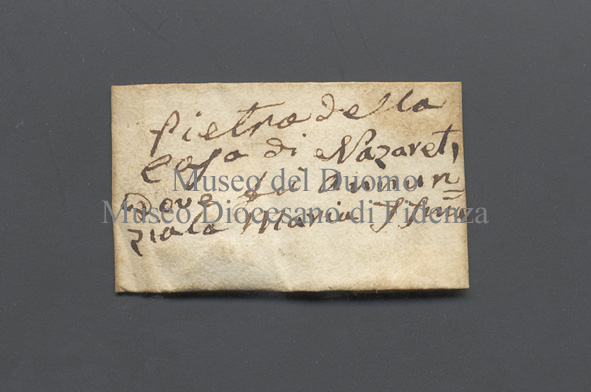 Pietra della
Casa di Nazaret,
Dove fù Annun=
ziata Maria SSma
Museo del Duomo
Museo Diocesano di Fidenza